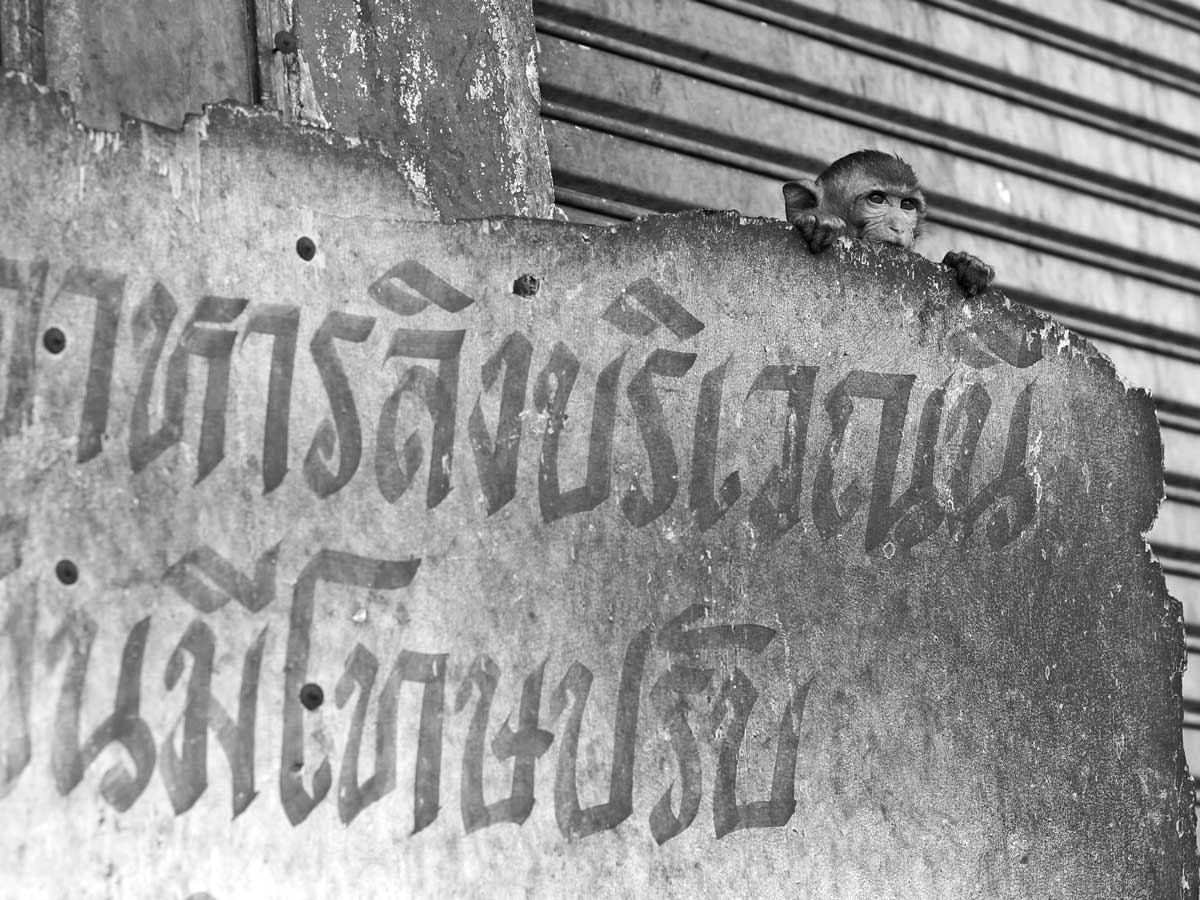 าหารลิงบริเวณนี้
นมีโทษปรับ